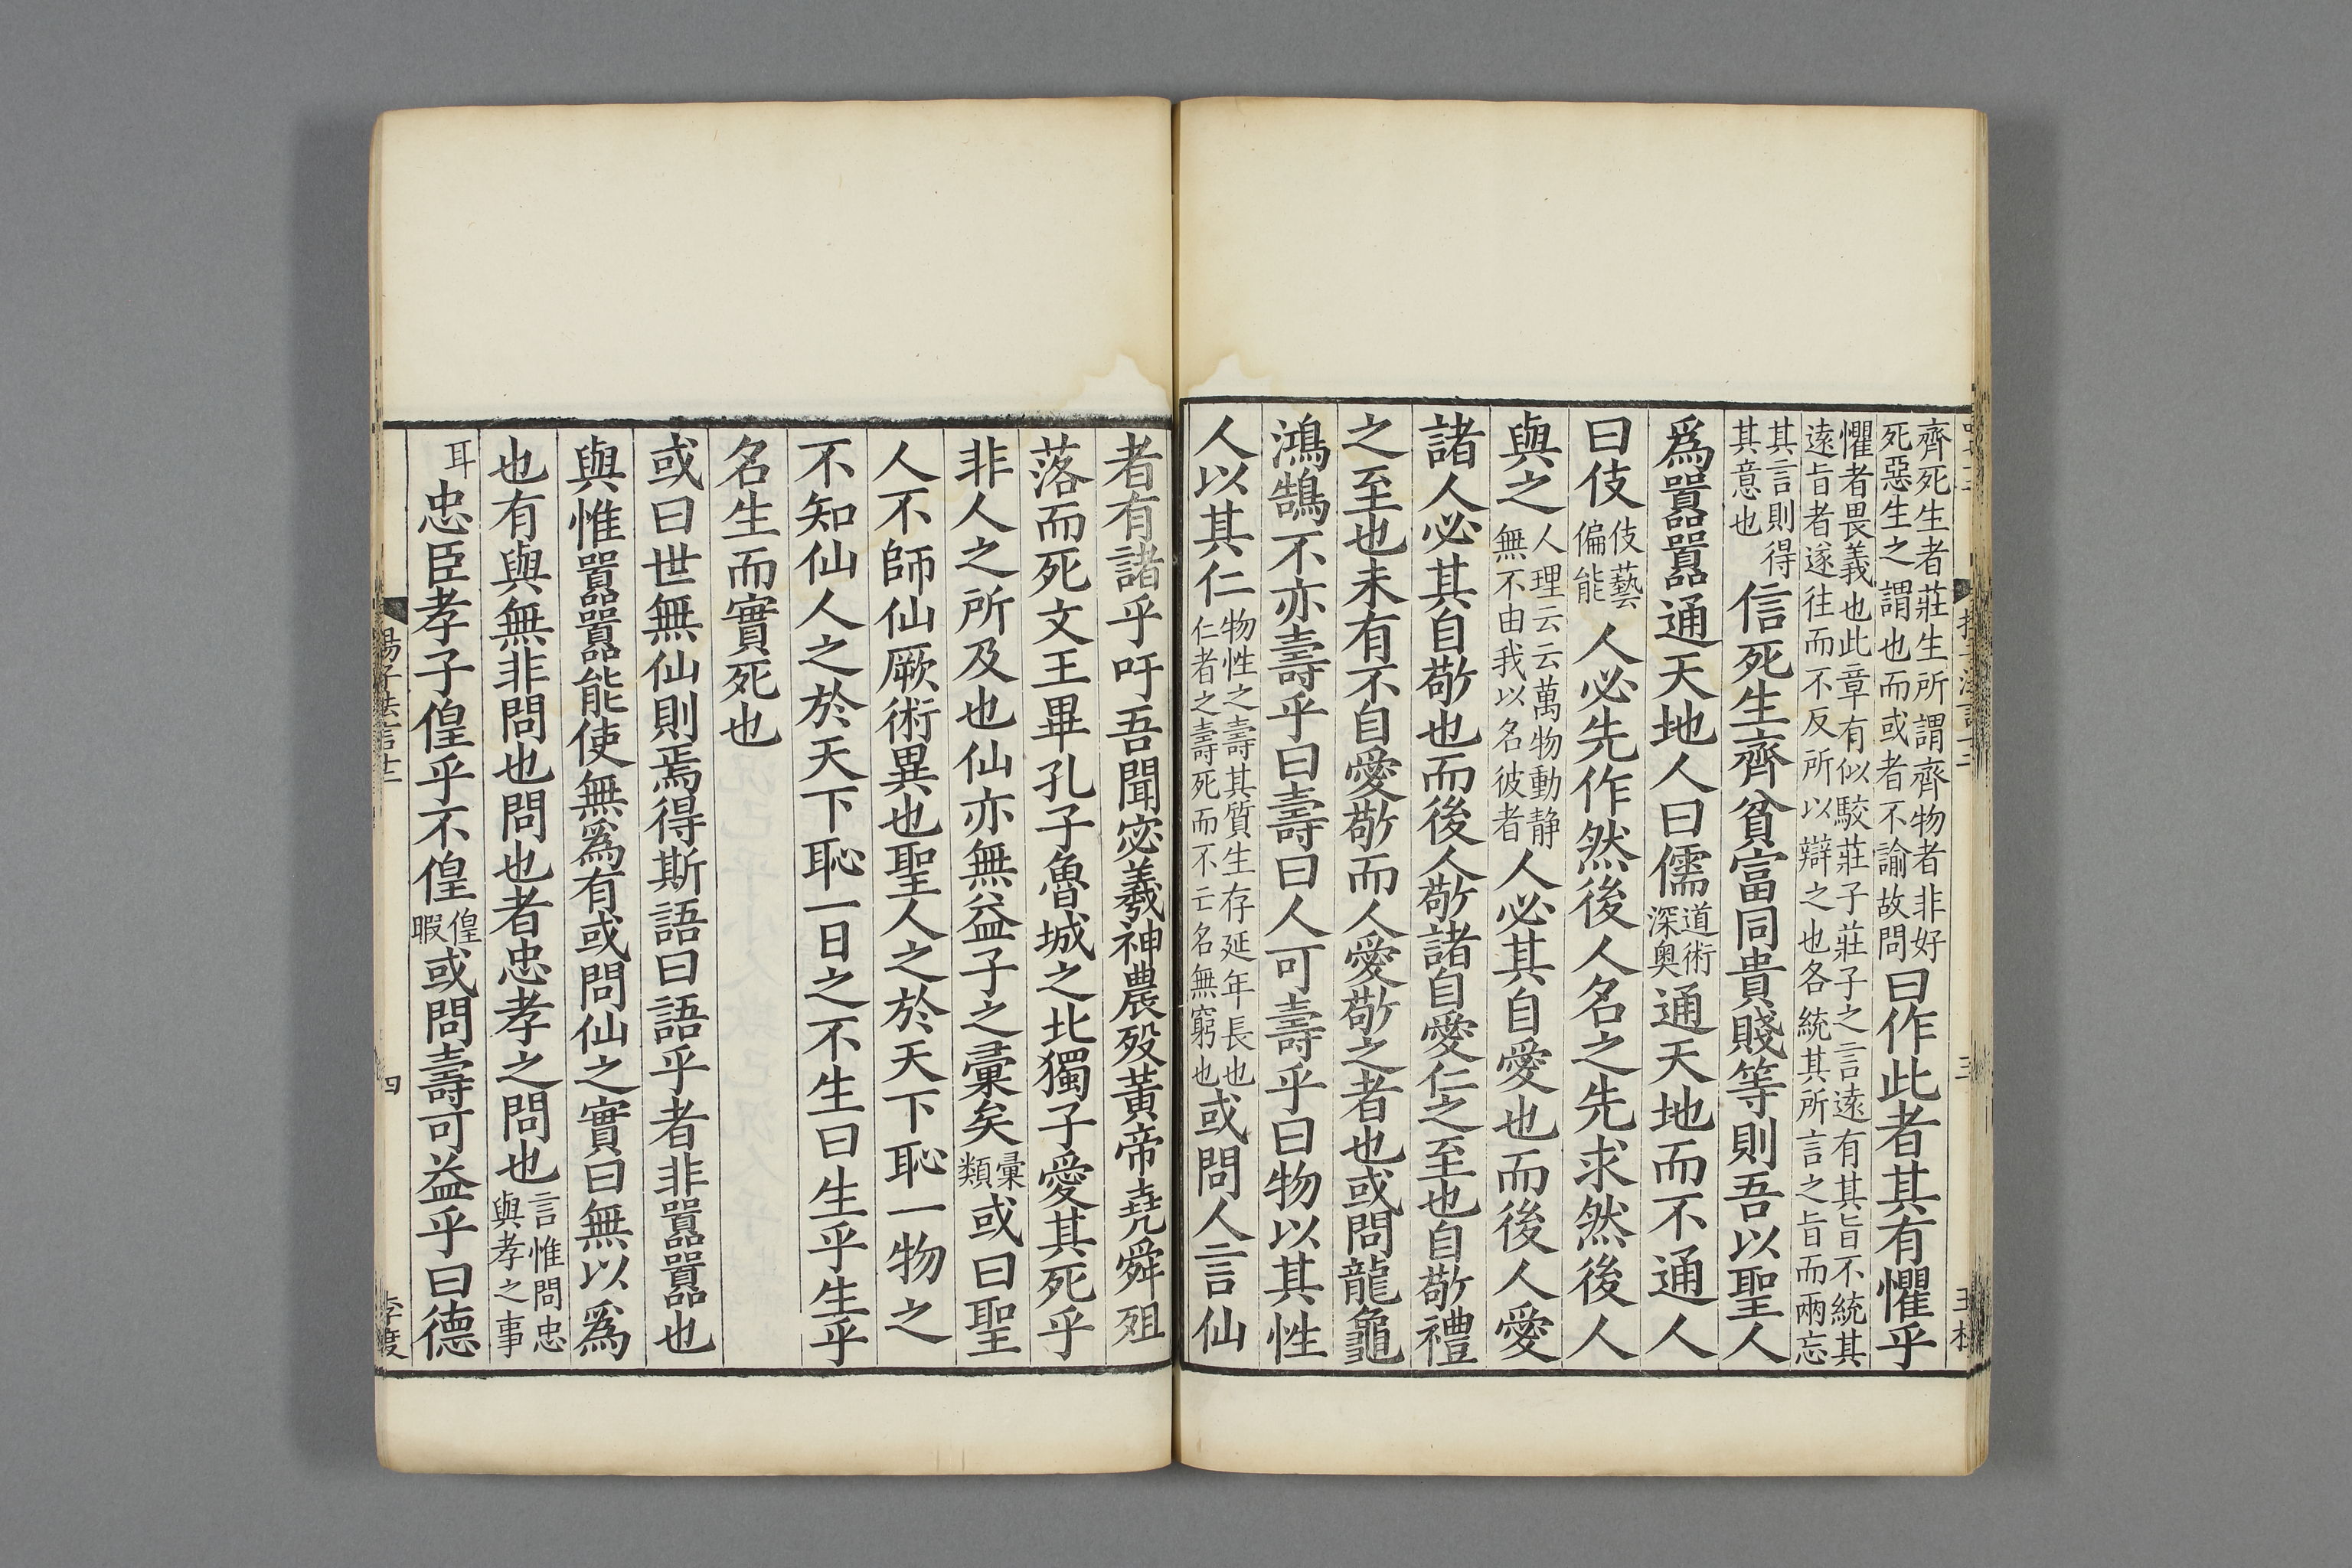 齊死生者莊生所謂齊物者非好
死惡生之謂也而或者不諭故問
曰作此者其有懼乎
懼者畏義也此章有似駮莊子莊子之言遠有其旨不統其
遠旨者遂往而不反所以辯之也各統其所言之旨而兩忘
其言則得
其意也
信死生齊貧富同貴賤等則吾以聖人
爲囂囂通天地人曰儒
道術
深奧
通天地而不通人
曰伎
伎藝
偏能
人必先作然後人名之先求然後人
與之
人理云云萬物動静
無不由我以名彼者
人必其自愛也而後人愛
諸人必其自敬也而後人敬諸自愛仁之至也自敬禮
之至也未有不自愛敬而人愛敬之者也或問龍龜
鴻鵠不亦壽乎曰壽曰人可壽乎曰物以其性
人以其仁
物性之壽其質生存延年長也
仁者之壽死而不亡名無窮也
或問人言仙
者有諸乎吁吾聞宓羲神農歿黃帝堯舜殂
落而死文王畢孔子魯城之北獨子愛其死乎
非人之所及也仙亦無益子之彙矣
彙
類
或曰聖
人不師仙厥術異也聖人之於天下恥一物之
不知仙人之於天下恥一日之不生曰生乎生乎
名生而實死也
或曰世無仙則焉得斯語曰語乎者非囂囂也
與惟囂囂能使無爲有或問仙之實曰無以爲
也有與無非問也問也者忠孝之問也
言惟問忠
與孝之事
耳
忠臣孝子偟乎不偟
偟
暇
或問壽可益乎曰德
四
李度